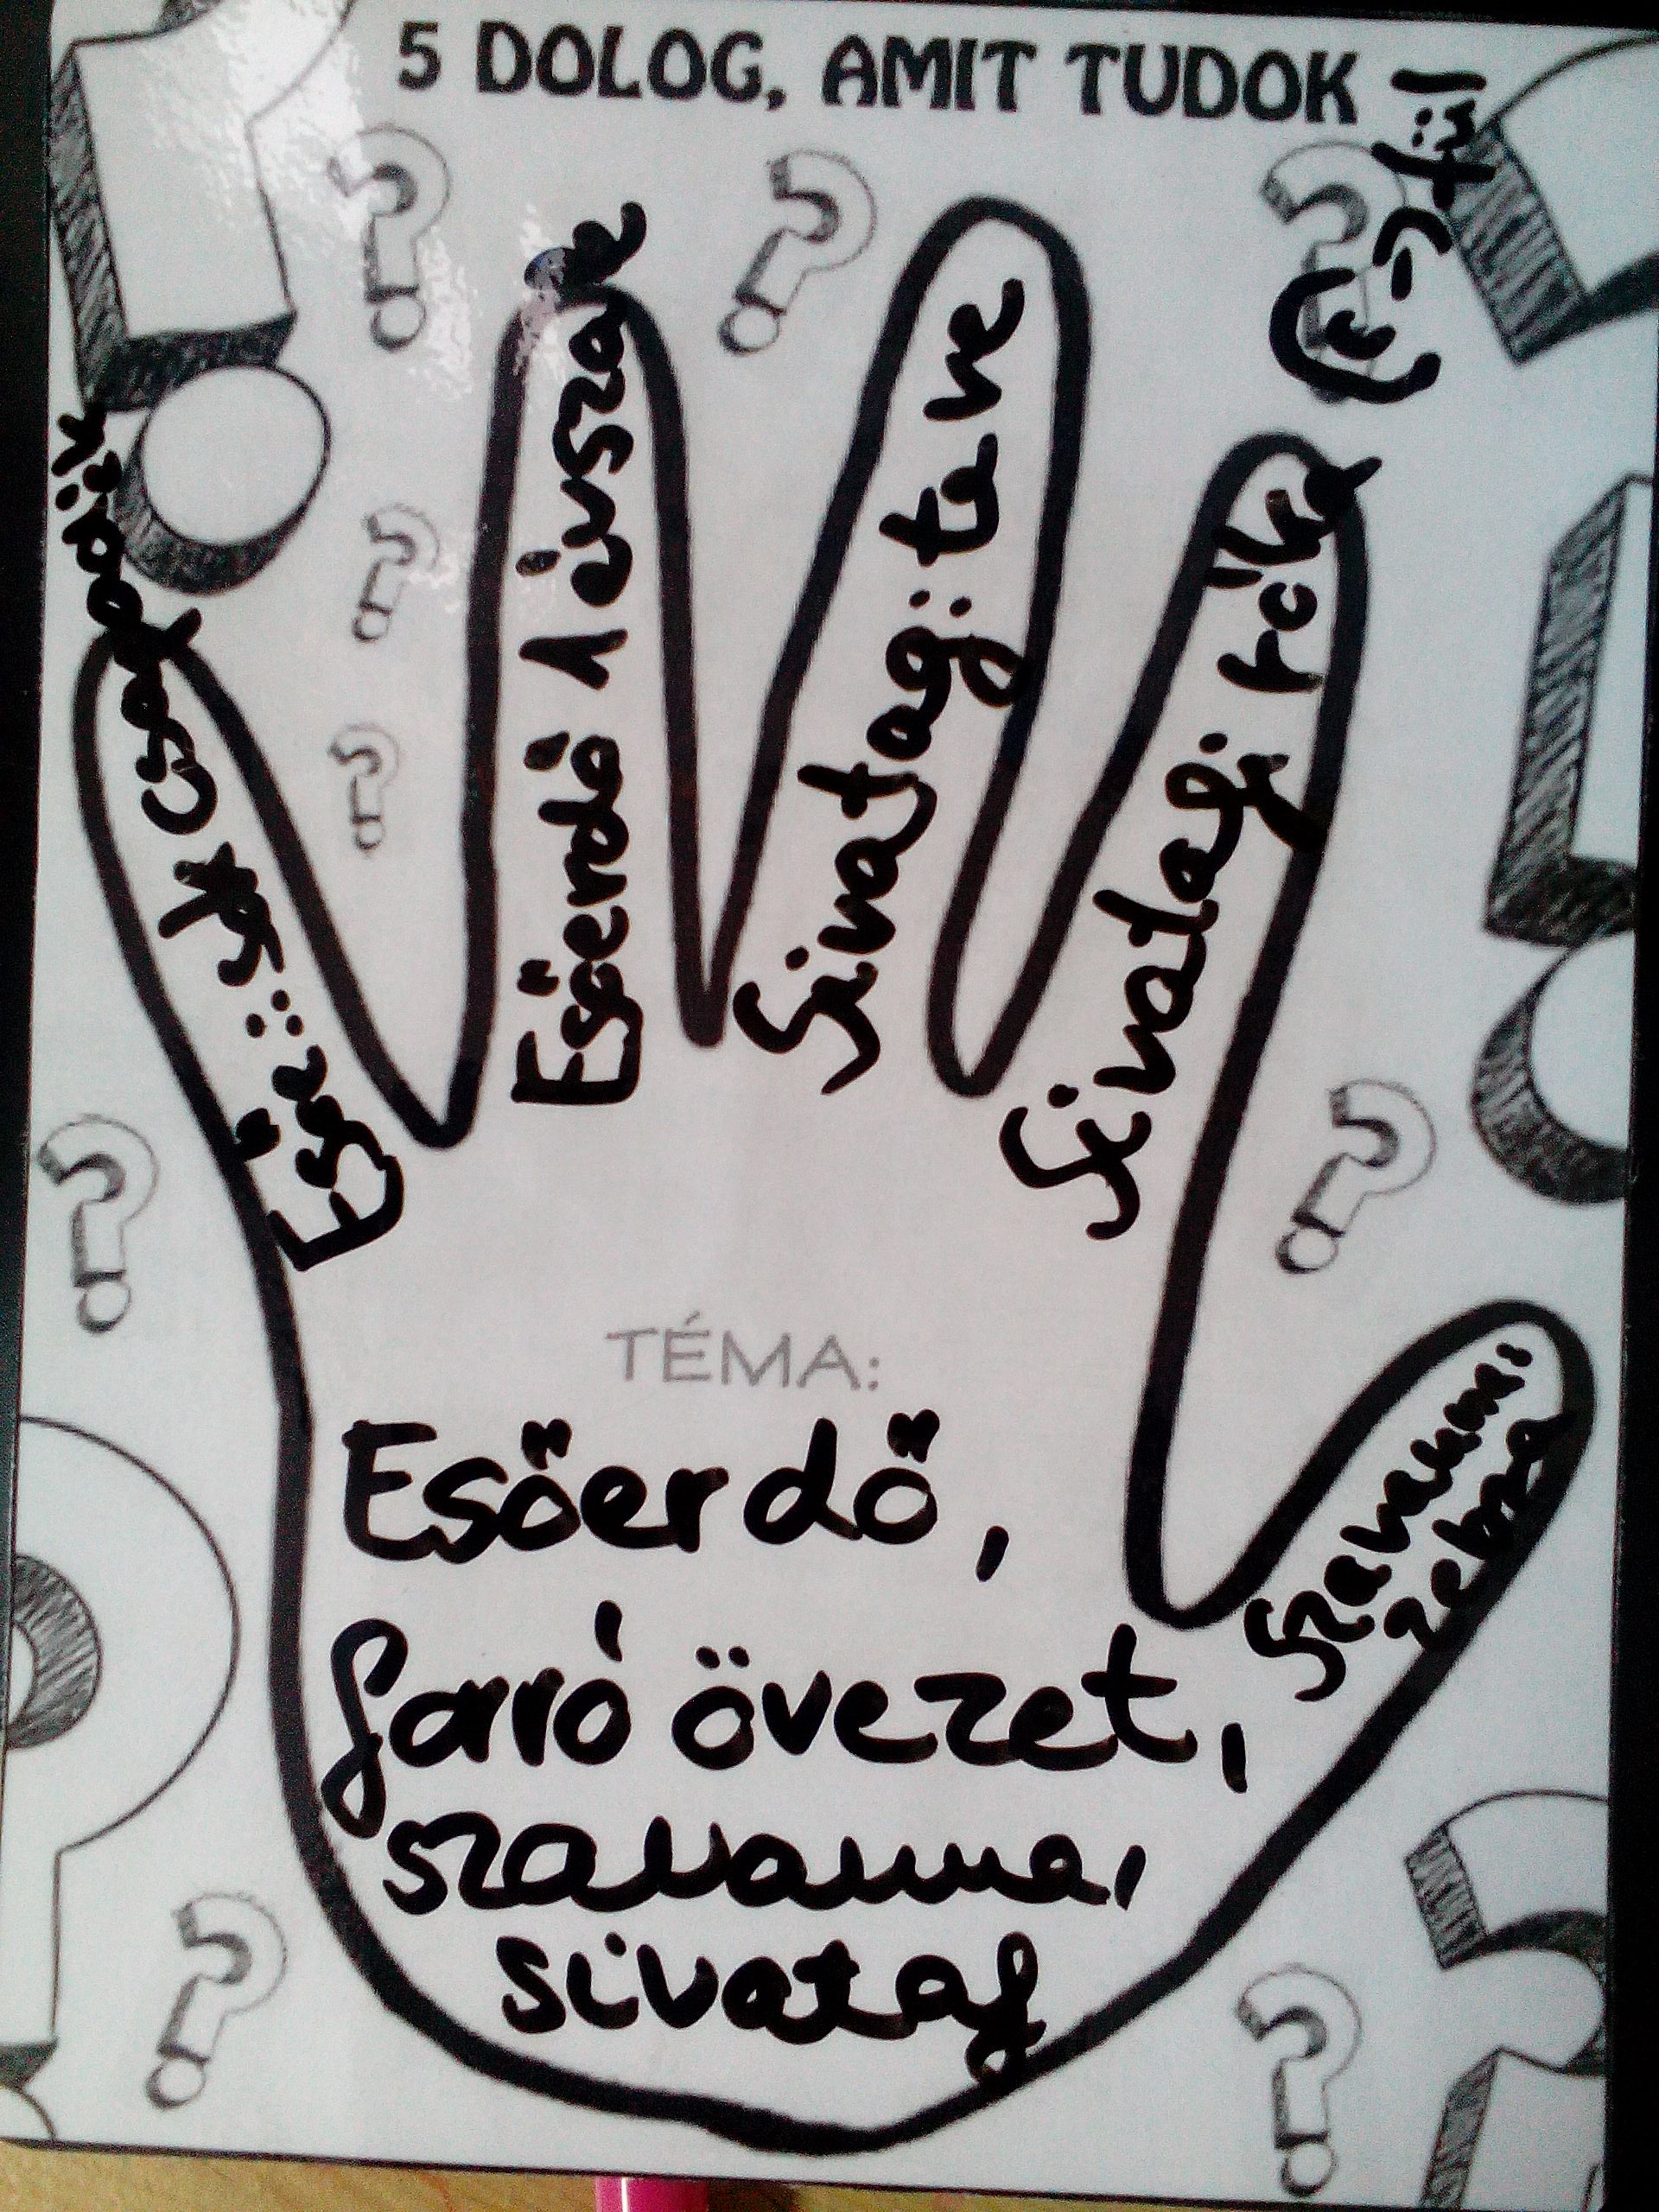 5 DOLOG, AMIT TUDOK
csapadék
Esőerdő 1 évszak
Sivatag: teve
Sivatag: róka
fül
Szavanna:
zebra
TÉMA:
Esőerdő,
forró övezet,
szavanna,
sivatag